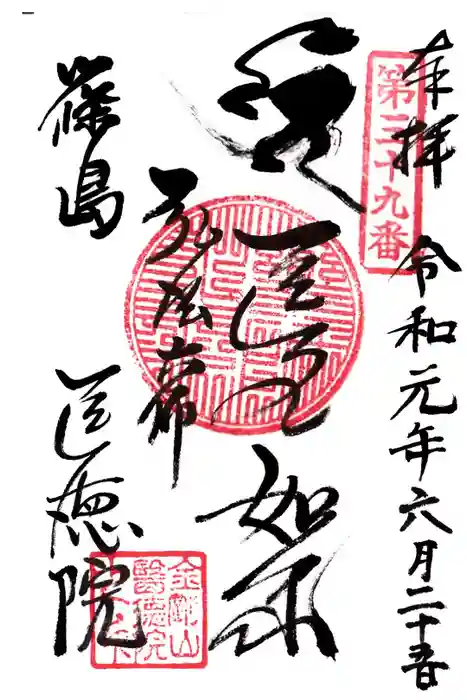 奉拝
令和元年六月二十五日
第三十九番
医王如来
弘法大師
篠島
医徳院
金剛山
醫德院